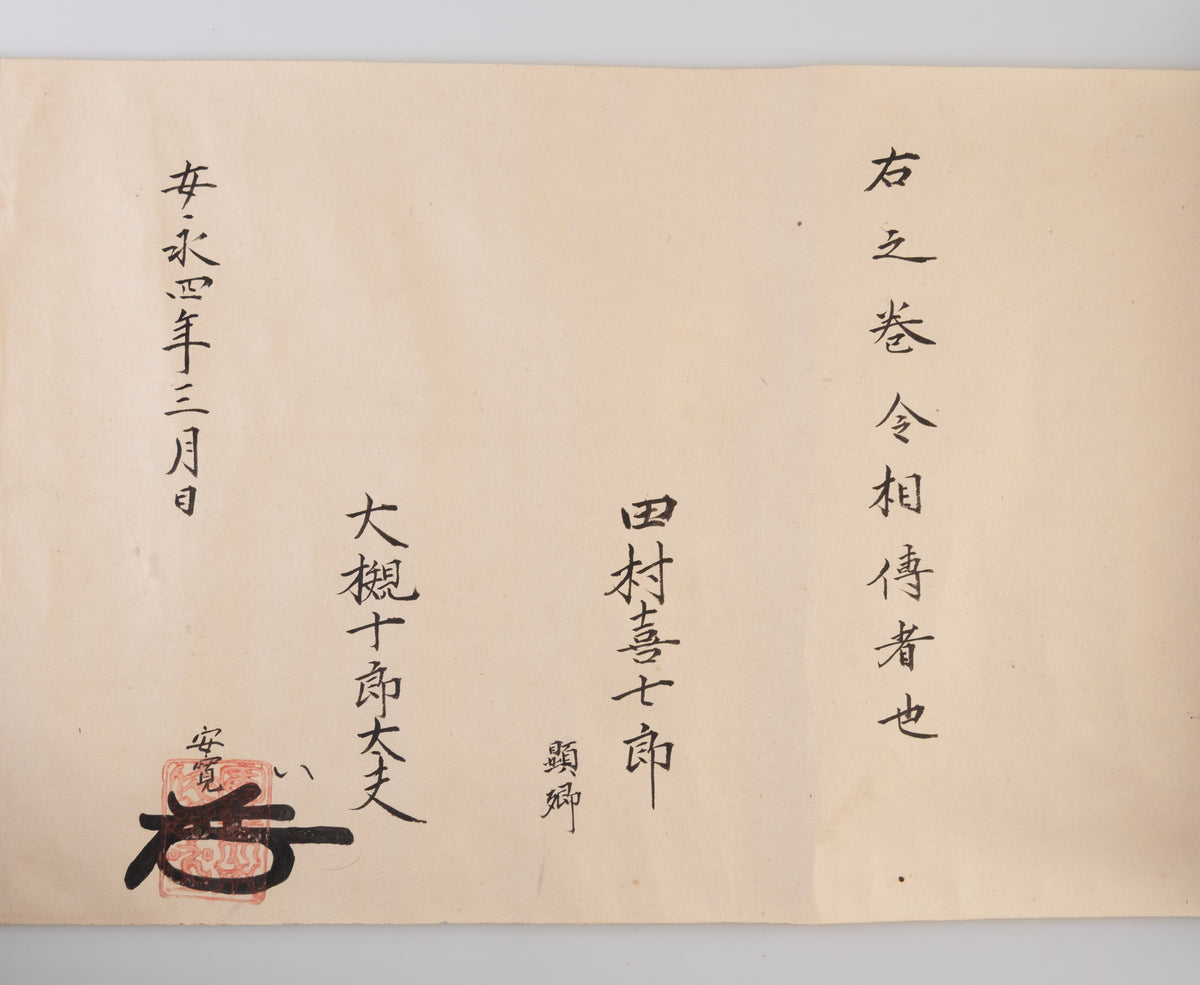 右之巻令相傳者也
田村喜七郎
顕卿
大槻十郎太夫
い
安寛
安永四年三月日